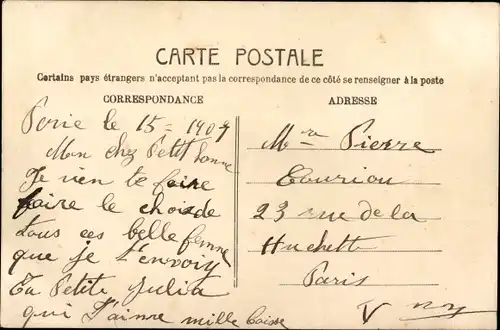 CARTE POSTALE
Certains pays étrangers n'acceptant pas la correspondance de ce côté se renseigner à la poste
CORRESPONDANCE
le 15 = 1907
Mon chez Petit bonne
Je vien te faire
faire le choi de
tous ces belle femme
que je t'envoiy
Ta Petite Julia
qui t'aime mille baise
ADRESSE
Pierre
Couriou
23 rue de la
Huchette
Paris
V